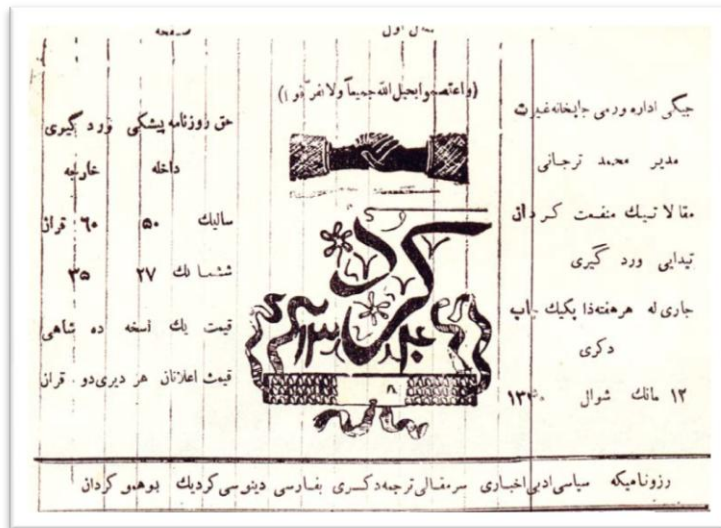 سال اول
صفحه
(واعتصموا بحبل الله جمیعاً ولا تفرّقوا)
جیگی اداره ورمی چاپخانه غیرت
مدیر محمد ترجانی
مقالا تیك منفعت کردان
تیدایی ورد گیری
جاری له هر هفته ذا یکیك چاپ
دکری
۱۲ مانك شوال
کرد
حق روزنامه پیشکی ورد گیری
داخله خارجه
سالیك ۵۰ ۶۰ قران
ششمانك ۲۷ ۳۵
قیمت یك نسخه ده شاهی
قیمت اعلانان هر دیری دو قران
رزونامیکه سیاسی ادبی اخباری سرمقالی ترجمه دکسری بفارسی دینوسی کردیك بوهمو کردان